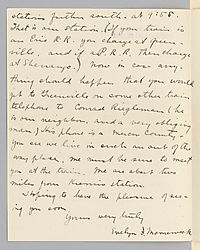 stations further south. at 9:58.
That is our station. (If your train is
an Erie R.R. you change at Green-
ville, and if a P.R.R. Then change
at Shenango.) Now in case any
thing should happen that you would
get to Greenville on some other train
telephone to Conrad Rieglman (he
is our neighbor, and a very obliging
man) his phone is a Mercer county.
You see we live in such an out of the
way place, we must be sure to meet
you at the train. We are about two
miles from Kremis station.
Hoping to have the pleasure of see-
ing you soon.
Yours very truly
Evelyn